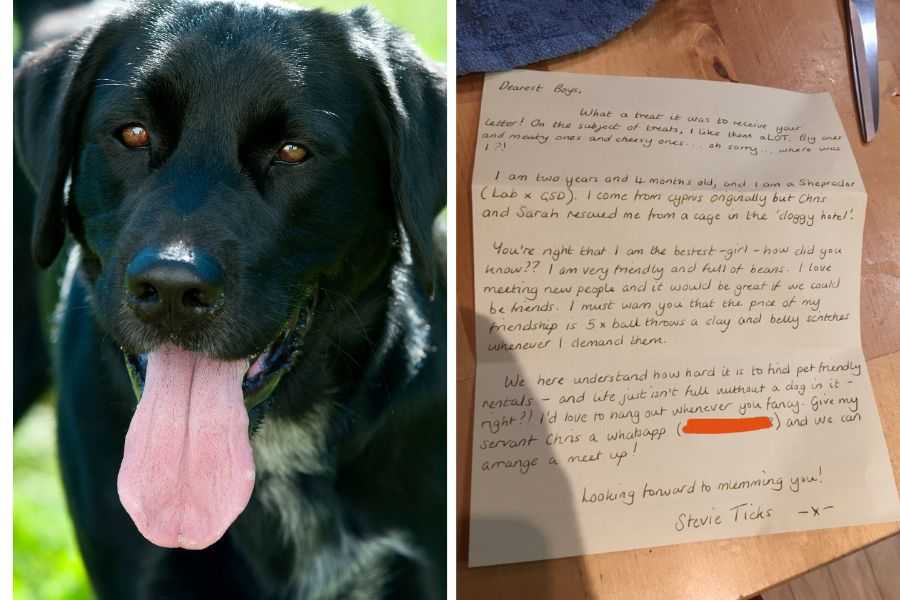 Dearest Boys,
What a treat it was to receive your
letter! On the subject of treats, I like them aLOT. Big ones
and meaty ones and cheesy ones... oh sorry... where was
I?!
I am two years and 4 months old, and I am a Sheprador
(Lab x GSD). I come from cyprus originally but Chris
and Sarah rescued me from a cage in the 'doggy hotel'.
You're right that I am the bestest-girl - how did you
know?? I am very friendly and full of beans. I love
meeting new people and it would be great if we could
be friends. I must warn you that the price of my
friendship is 5x ball throws a day and belly scritches
whenever I demand them.
We here understand how hard it is to find pet friendly
rentals - and life just isn't full without a dog in it -
right?! I'd love to hang out whenever you fancy. Give my
servant Chris a whatsapp ( ) and we can
arrange a meet up!
Looking forward to mlemming you!
Stevie Ticks -x-